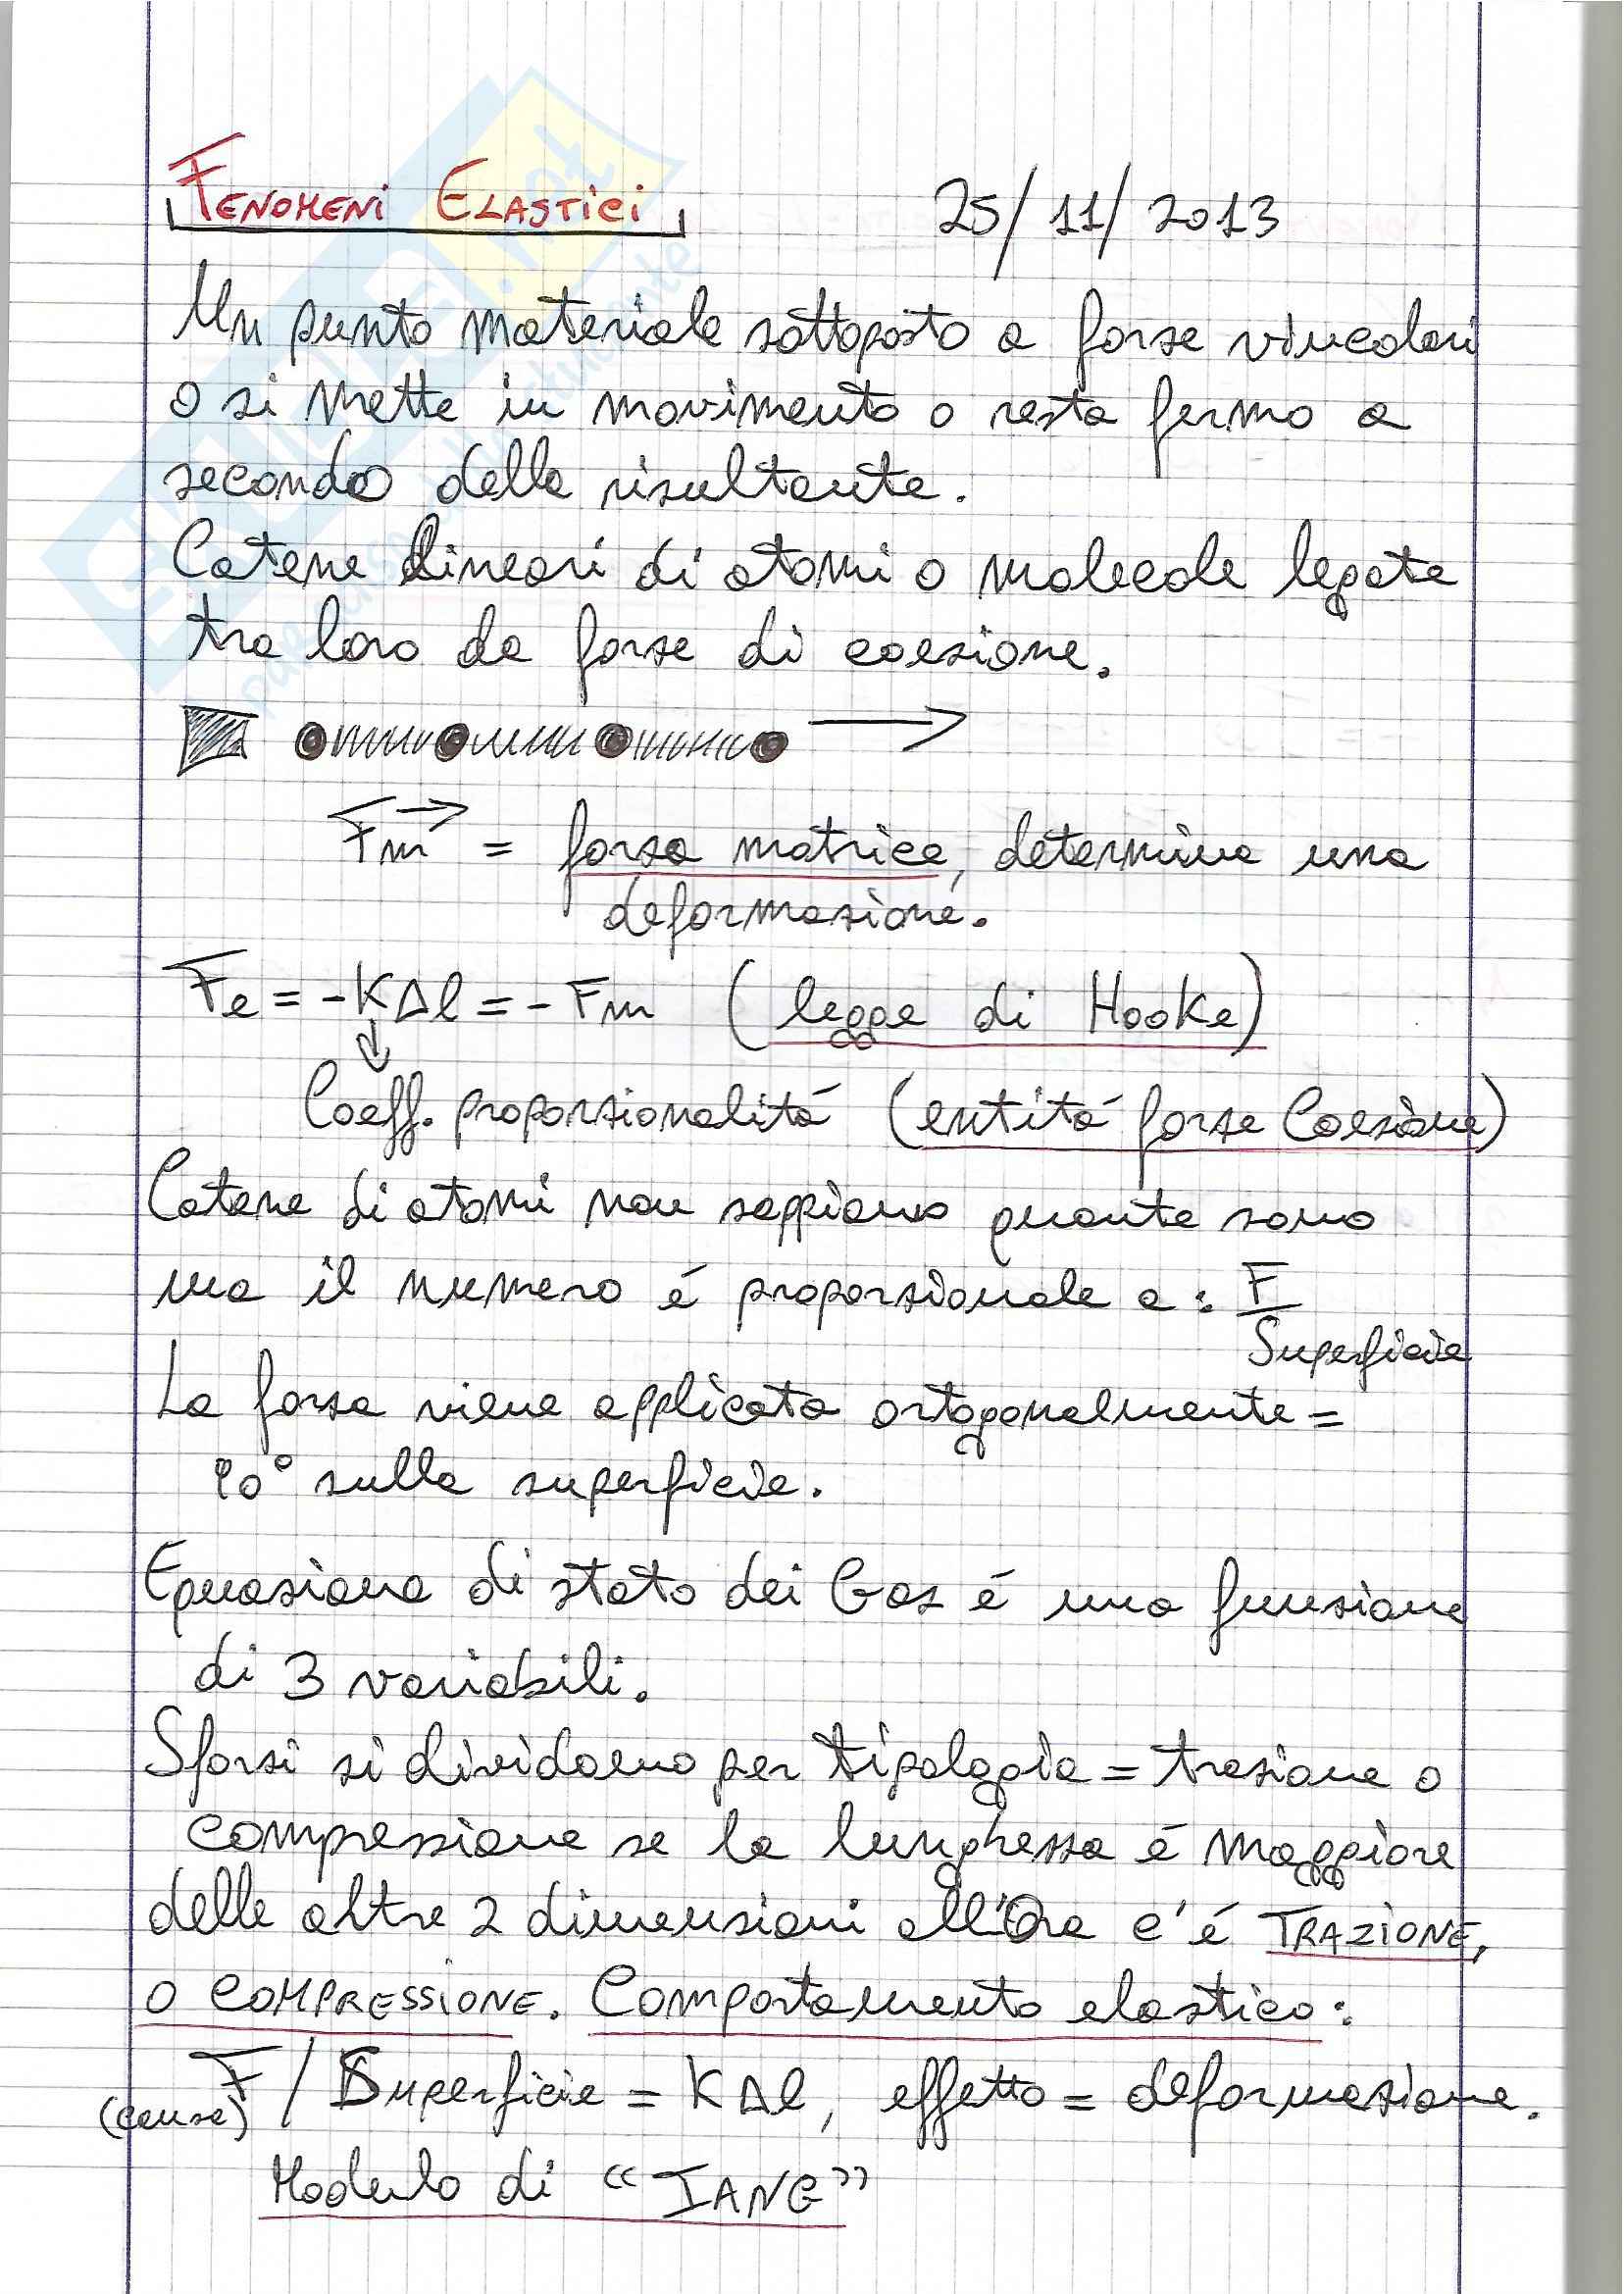 FENOMENI ELASTICI 25/11/2013
Un punto materiale sottoposto a forze vincolari
o si mette in movimento o resta fermo a
secondo della risultante.
Catene lineari di atomi o molecole legate
tra loro da forze di coesione.
Fm = forza motrice, determina una
deformazione.
Fe = -KΔl = - Fm (legge di Hooke)
Coeff. proporzionalità (entità forze Coesione)
Catene di atomi non sappiamo quante sono
ma il numero é proporzionale a: F
Superficie
La forza viene applicata ortogonalmente =
90° sulla superficie.
Equazione di stato dei Gas é una funzione
di 3 variabili.
Sforzi si dividono per tipologia = trazione o
compressione se la lunghezza é maggiore
delle altre 2 dimensioni all'Ora c'é TRAZIONE,
o COMPRESSIONE. Comportamento elastico:
F / Superficie = KΔl, effetto = deformazione.
(causa)
Modulo di "IANG"